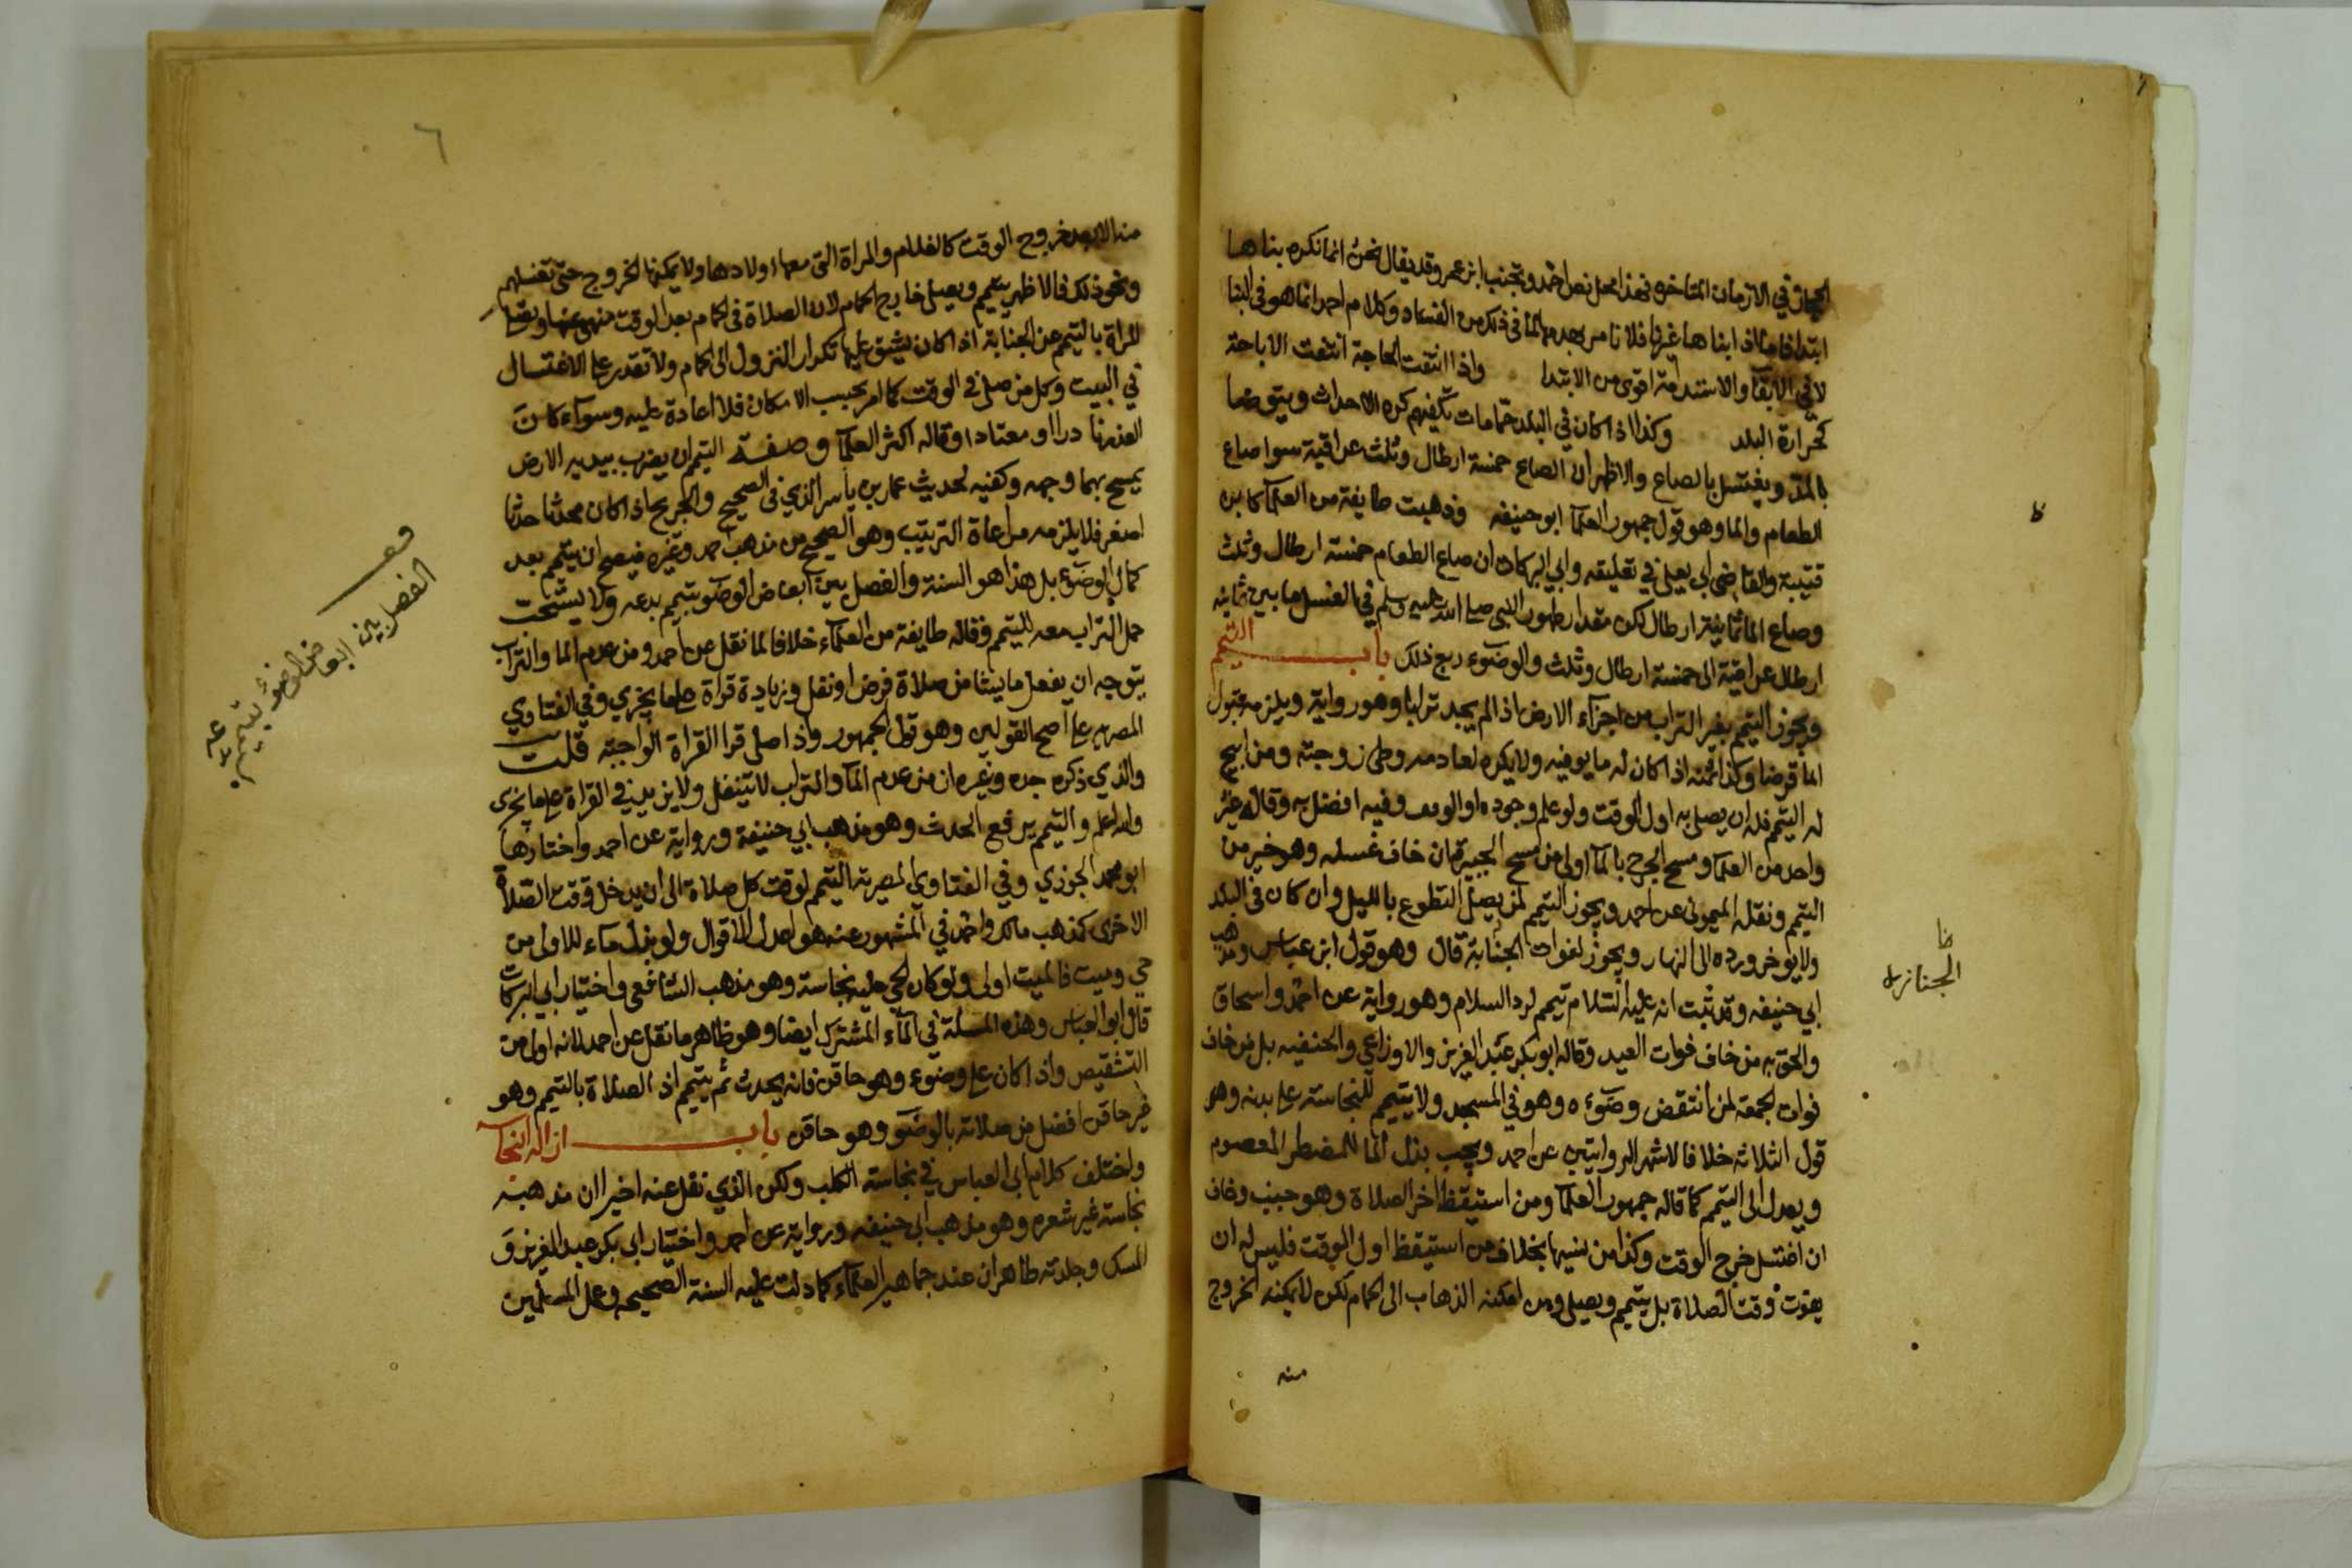 الحجاز في الازمان المتاخره فهذا محل نص احمد وتجنب ابن عمر وقد يقال نحن انما نكره بناها
ابتدا فاما اذا بناها غيرنا فلا نامر بهدمها لما في ذلك من الفساد وكلام احمد انما هو في البنا
لا في الابقا والاستدامة اقوى من الابتدا واذا انتفت الحاجة انتفت الاباحة
كحرارة البلد وكذا اذا كان في البلد حمامات تكفيهم كره الاحداث ويتوضا
بالمد ويغتسل بالصاع والاظهر ان الصاع خمسة ارطال وثلث عراقية سوا صاع
الطعام والما وهو قول جمهور العلما ابو حنيفه وذهبت طايفة من العلما كابن
قتيبة والقاضي ابي يعلى في تعليقه وابي البركات ان صاع الطعام خمسة ارطال وثلث
وصاع الما ثمانية ارطال لكن مقدار طهور النبي صلى الله عليه وسلم في الغسل ما بين ثمانيه
ارطال عراقية الى خمسة ارطال وثلث والوضوء ربع ذلك باب التيمم
ويجوز التيمم بغير التراب من اجزاء الارض اذا لم يجد ترابا وهو رواية ويلزمه قبول
الما قرضا وكذا ثمنه اذا كان له ما يوفيه ولا يكره لعادمه وطئ زوجته ومن ابيح
له التيمم فله ان يصلي به اول الوقت ولو علم وجوده اخر الوقت وفيه افضل به وقاله غير
واحد من العلما ومسح الجرح بالما اولى من مسح الجبيرة ان خاف غسله وهو خير من
التيمم ونقله الميموني عن احمد ويجوز التيمم لمن يصلي التطوع بالليل وان كان في البلد
ولا يوخر ورده الى النهار ويجوز لفوات الجنابة قال وهو قول ابن عباس ومذهب
ابي حنيفه وقد ثبت انه عليه السلام تيمم لرد السلام وهو رواية عن احمد واسحاق
والحق به من خاف فوات العيد وقاله ابو بكر عبد العزيز والاوزاعي والحنفيه بل من خاف
فوات الجمعة لمن انتقض وضوءه وهو في المسجد ولا يتيمم للنجاسة على بدنه وهو
قول الثلاثه خلافا لاشهر الروايتين عن احمد ويجب بذل الما للمضطر المعصوم
ويعدل الى التيمم كما قاله جمهور العلما ومن استيقظ اخر الصلاة وهو جنب وخاف
ان اغتسل خرج الوقت وكذا من نسيها بخلاف من استيقظ اول الوقت فليس له ان
يفوت وقت الصلاة بل يتيمم ويصلي ومن امكنه الذهاب الى الحمام لكن لا يمكنه الخروج
منه
ظا
الجنازه
٦
منه الا بعد خروج الوقت كالغلام والمراة التي معها اولادها ولا يمكنها الخروج حتى تغسلهم
ونحو ذلك فالاظهر يتيمم ويصلي خارج الحمام لان الصلاة في الحمام بعد الوقت منهي عنها
المراة بالتيمم عن الجنابة اذا كان يشق عليها تكرار النزول الى الحمام ولا تقدر على الاغتسال
في البيت وكل من صلى في الوقت كما امر بحسب الامكان فلا اعادة عليه وسواء كان
العذر نادرا او معتادا وقاله اكثر العلما وصفة التيمم ان يضرب بيديه الارض
يمسح بهما وجهه وكفيه لحديث عمار بن ياسر الذي في الصحيح والجريح اذا كان محدثا حدثا
اصغر فلا يلزمه مراعاة الترتيب وهو الصحيح من مذهب احمد وغيره فيصح ان يتيمم بعد
كمال الوضوء بل هذا هو السنة والفصل بين ابعاض الوضو بتيمم بدعه ولا يستحب
حمل التراب معه للتيمم وقاله طايفة من العلماء خلافا لما نقل عن احمد ومن عدم الما والتراب
يتوجه ان يفعل ما يشا من صلاة فرض او نفل وزيادة قراة على ما يجزي وفي الفتاوي
المصريه على اصح القولين وهو قول الجمهور واذا صلى قرا القراة الواجبة قلت
والذي ذكره جده وغيره ان من عدم الما والتراب لا يتنفل ولا يزيد في القراة على ما يجزى
والله اعلم والتيمم يرفع الحدث وهو مذهب ابي حنيفة ورواية عن احمد واختارها
ابو محمد الجوزي وفي الفتاوي المصرية التيمم لوقت كل صلاة الى ان يدخل وقت الصلاة
الاخرى كمذهب مالك واحمد في المشهور عنه هو اعدل الاقوال ولو بذل ماء للاولى من
حي وميت فالميت اولى ولو كان الحي عليه نجاسة وهو مذهب الشافعي واختيار ابي البركات
قال ابو العباس وهذه المسلة في الماء المشترك ايضا وهو ظاهر ما نقل عن احمد لانه اولى من
التشقيص واذا كان على وضوء وهو حاقن فانه يحدث ثم يتيمم اذ الصلاة بالتيمم وهو
غير حاقن افضل من صلاته بالوضو وهو حاقن باب ازاله النجاسة
واختلف كلام ابى العباس في نجاسة الكلب ولكن الذي نقل عنه اخيرا ان مذهبه
نجاسة غير شعره وهو مذهب ابى حنيفه ورواية عن احمد واختيار ابي بكر عبد العزيز و
المسك وجلدته طاهران عند جماهير العلماء كما دلت عليه السنة الصحيحه وعمل المسلمين
الفصل بين ابعاض الوضوء بتيمم بدعه